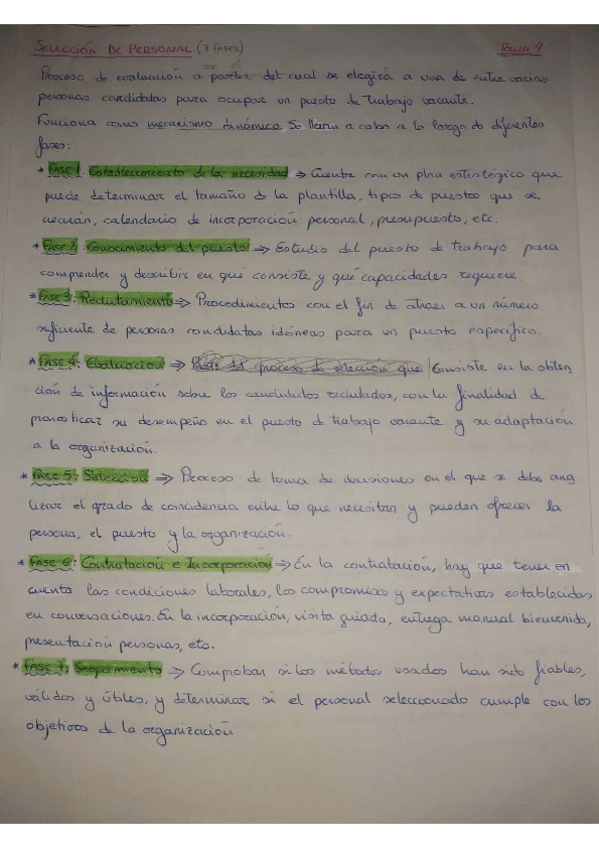 SELECCIÓN DE PERSONAL (7 FASES) Tema 9
Proceso de evaluación a partir del cual se elegirá a una de entre varias
personas candidatas para ocupar un puesto de trabajo vacante.
Funciona como mecanismo dinámico. Se llevan a cabo a lo largo de diferentes
fases:
* FASE 1: Establecimiento de la necesidad => Cuenta con un plan estratégico que
puede determinar el tamaño de la plantilla, tipos de puestos que se
crearán, calendario de incorporación personal, presupuesto, etc.
* FASE 2: Conocimiento del puesto => Estudio del puesto de trabajo para
comprender y describir en qué consiste y qué capacidades requiere.
* FASE 3: Reclutamiento => Procedimientos con el fin de atraer a un número
suficiente de personas candidatas idóneas para un puesto específico.
* FASE 4: Evaluación => del proceso de selección que Consiste en la obten
ción de información sobre los candidatos reclutados, con la finalidad de
pronosticar su desempeño en el puesto de trabajo vacante y su adaptación
a la organización.
* FASE 5: Selección => Proceso de toma de decisiones en el que se debe ana
lizar el grado de coincidencia entre lo que necesitan y pueden ofrecer la
persona, el puesto y la organización.
* FASE 6: Contratación e Incorporación => En la contratación, hay que tener en
cuenta las condiciones laborales, los compromisos y expectativas establecidas
en conversaciones. En la incorporación, visita guiada, entrega manual bienvenida,
presentación personas, etc.
* FASE 7: Seguimiento => Comprobar si los métodos usados han sido fiables,
válidos y útiles, y determinar si el personal seleccionado cumple con los
objetivos de la organización